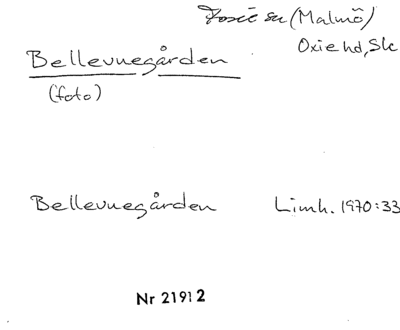 Fosie sn (Malmö)
Oxie hd, Sk
Bellevuegården
(foto)
Bellevuegården Limh. 1970:33
Nr 21912